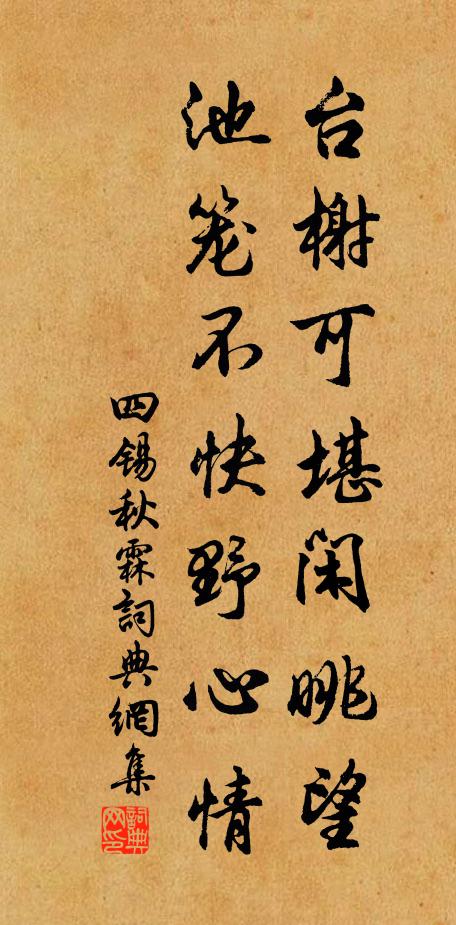 台榭可堪闲眺望
池笼不快野心情
四锡秋霖詞典網集
詞典网印